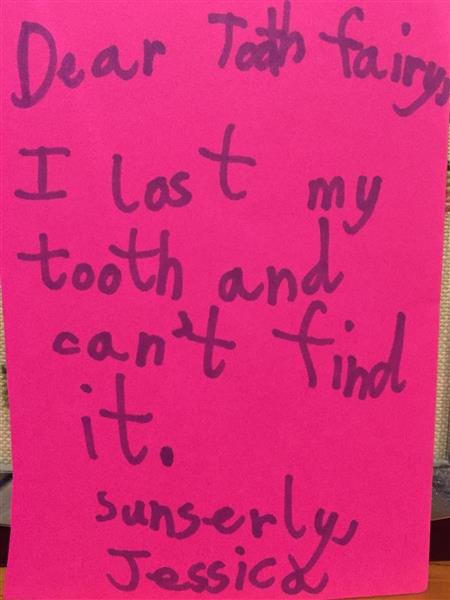 Dear Tooth fairy,
I lost my
tooth and
can't find
it.
sunserly,
Jessica